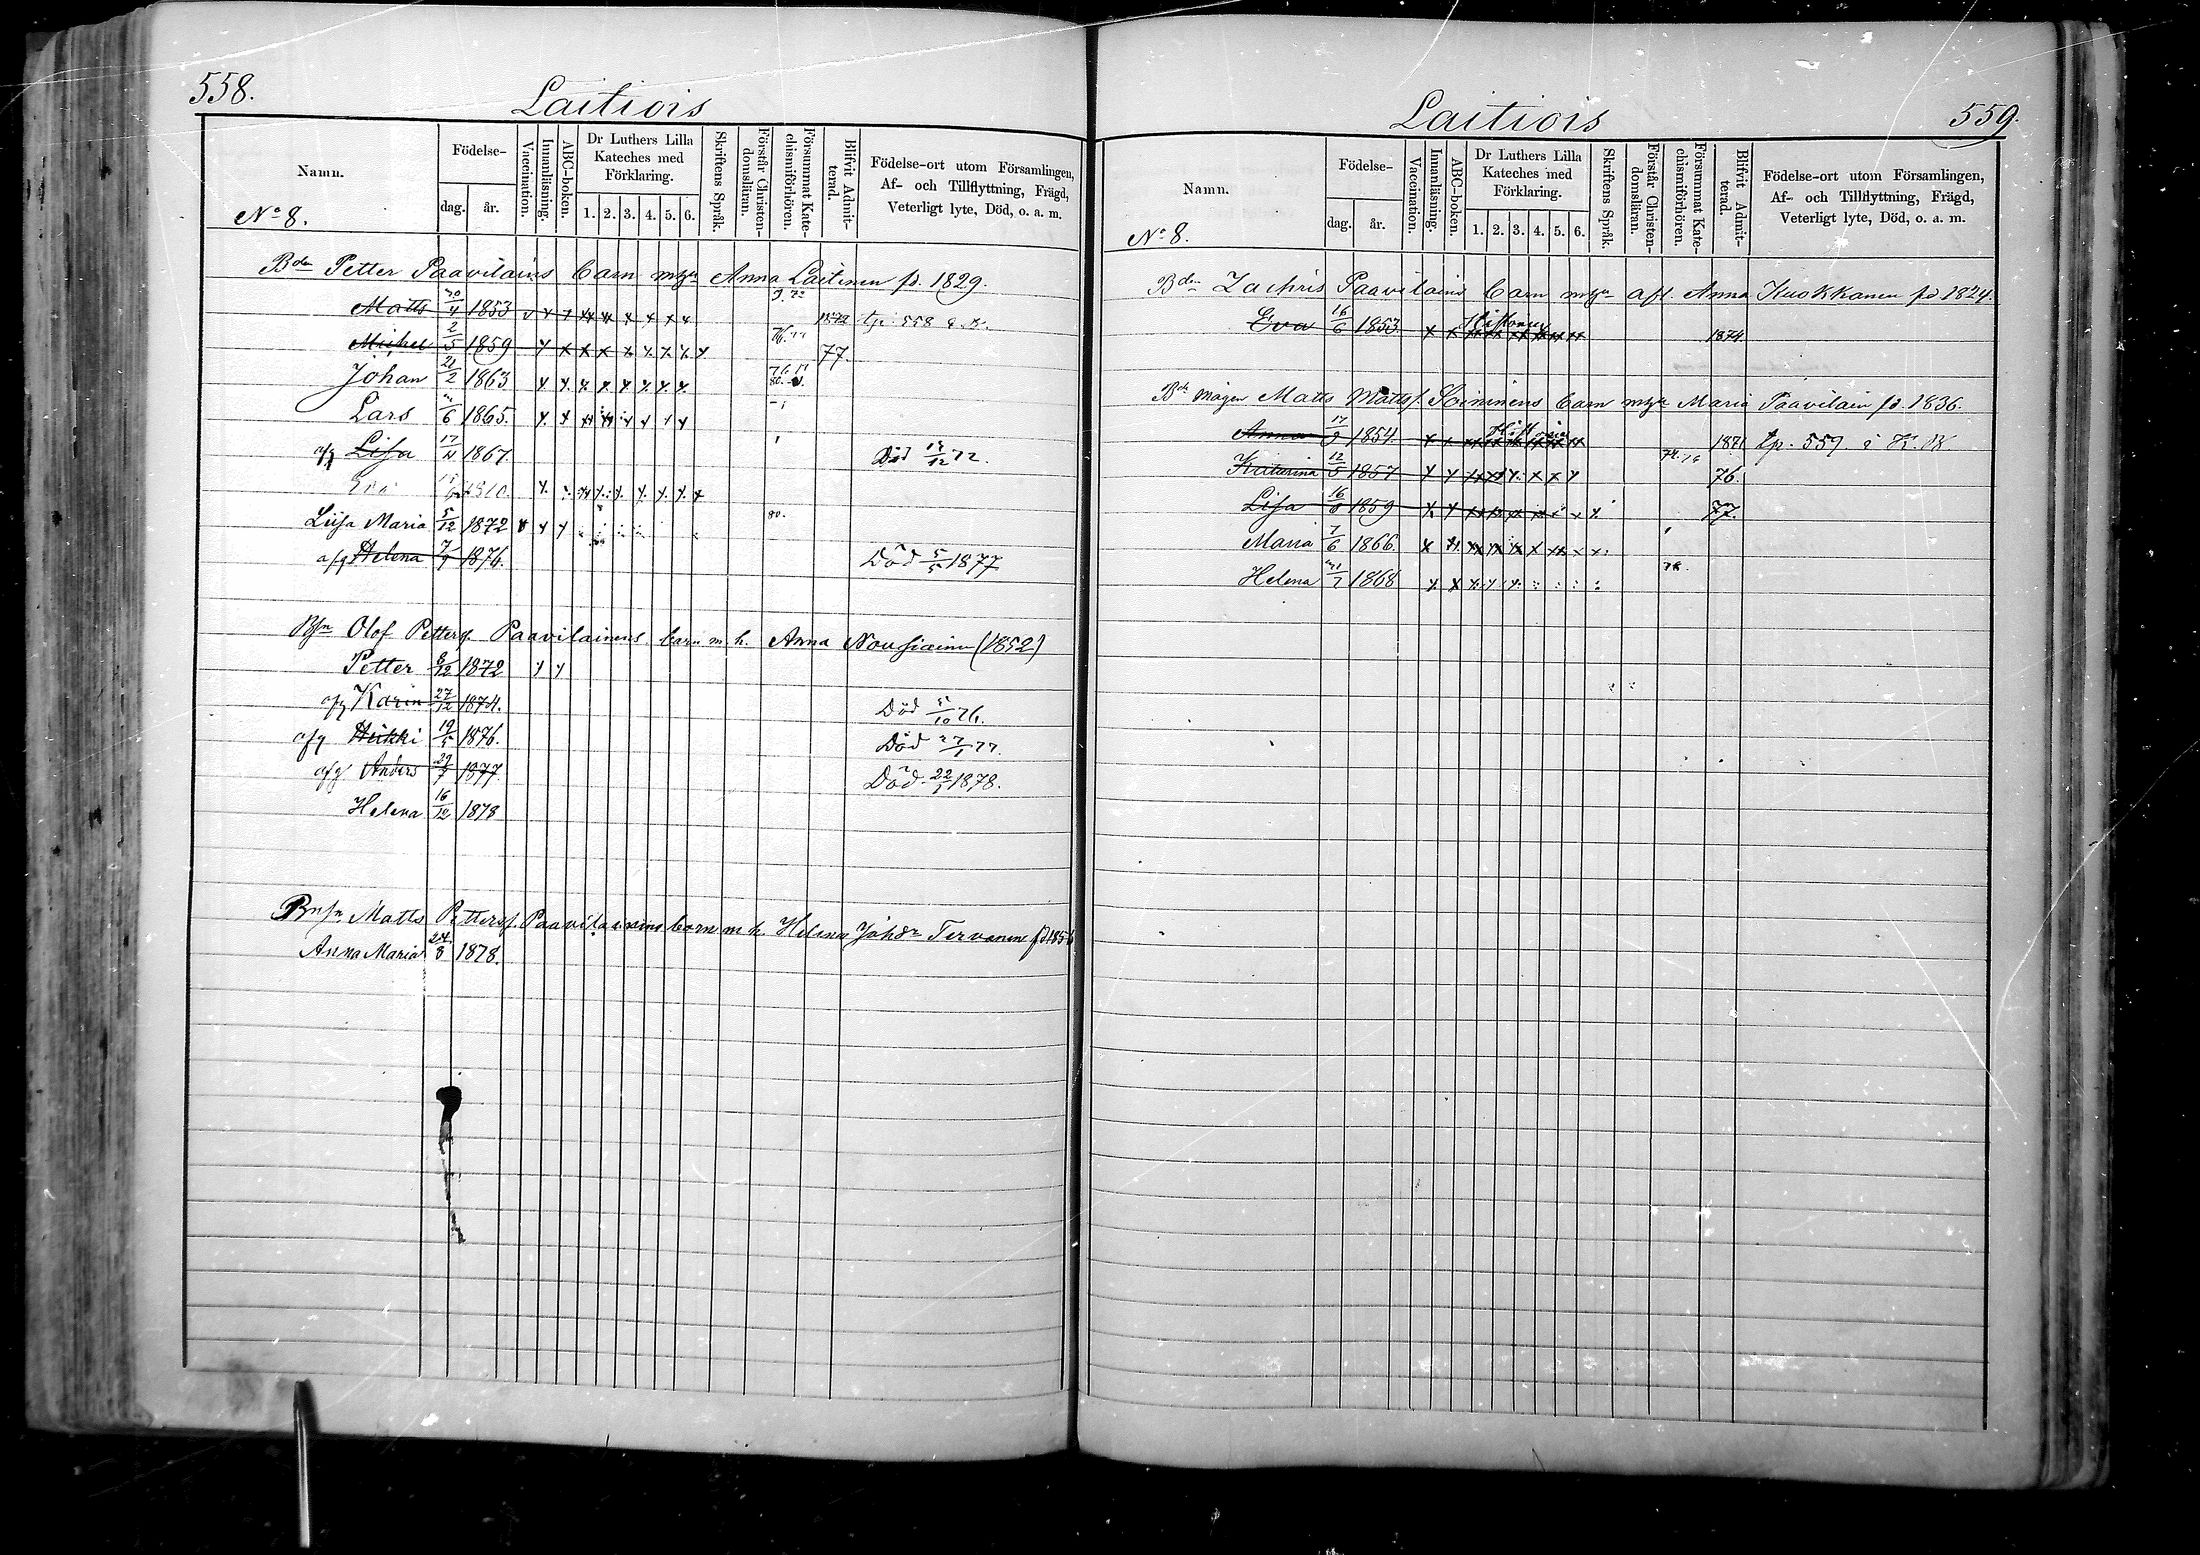 558.
Laitiois
Namn.
Födelse-
dag.
år.
Vaccination.
Innanläsning.
ABC-boken.
Dr Luthers Lilla Kateches med Förklaring.
1. 2. 3. 4. 5. 6.
Skriftens Språk.
Förstår Christendomsläran.
Försummat Katechismiförhören.
Blifvit Admitterad.
Födelse-ort utom Församlingen,
Af- och Tillflyttning, Frägd,
Veterligt lyte, Död, o. a. m.
No 8.
Bdn Petter Paavilains barn m Anna Laitinen fd. 1829.
Matts 30/4 1853 1872 tp. 558
Michel 2/5 1859 77.
Johan 21/2 1863
Lars /6 1865.
afg Lisa 17/11 1867. Död /12 72.
Liisa Maria 5/12 1872 80.
afg Helena 7/9 1876. Död 5/5 1877
Bsn Olof Petterss. Paavilainens barn m. h. Anna Nousiainen (1852)
Petter 8/12 1872
afg Karin 27/12 1874. Död 5/10 76.
afg Heikki 19/5 1876. Död 27/1 77.
afg Anders 29/7 1877. Död 22/1 1878.
Helena 16/12 1878
Matts Petterss. Paavilainens barn m h. Helena Johdr Tervonen fd 1856
Anna Maria 24/3 1878.
Laitiois
559.
Namn.
Födelse-
dag.
år.
Vaccination.
Innanläsning.
ABC-boken.
Dr Luthers Lilla Kateches med Förklaring.
1. 2. 3. 4. 5. 6.
Skriftens Språk.
Förstår Christendomsläran.
Försummat Katechismiförhören.
Blifvit Admitterad.
Födelse-ort utom Församlingen,
Af- och Tillflyttning, Frägd,
Veterligt lyte, Död, o. a. m.
No 8.
Bdn Zachris Paavilains barn m afl. Anna Kuokkanen fd 1824.
Eva 16/6 1853 1874
Bdn mågen Matts Mattss. Soininens barn m Maria Paavilain fd. 1836.
Anna 17/9 1854 1871 tp. 559
Katarina 12/5 1857 76.
Lisa 16/8 1859 77.
Maria 7/6 1866.
Helena /7 1868